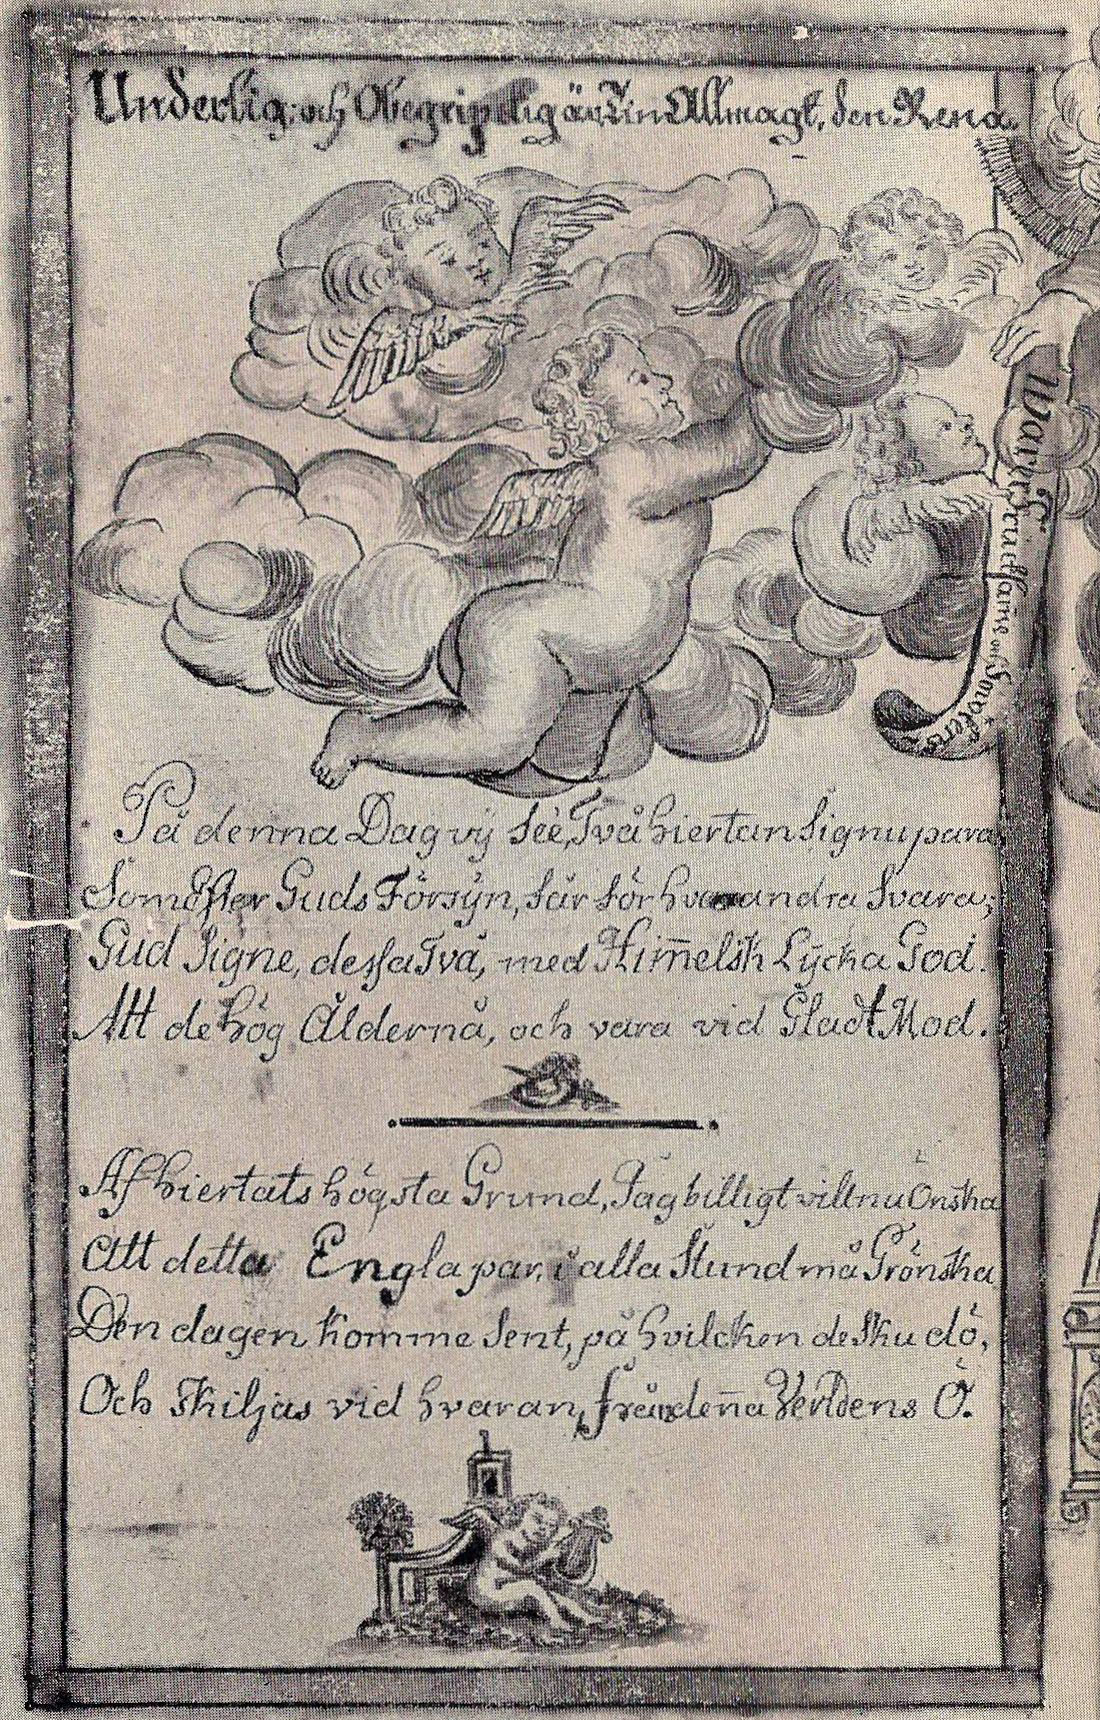 Underlig, och Obegripelig är Tin Allmagt, den Rena
Warer Fruktsame och
På denna Dag vÿ See, Två hiertan Sig nu para,
Som Efter Guds Försÿn, får för hvarandra Svara;
Gud Signe, dessa Två, med Him̄elsk Lÿcka God.
Att de hög Ålder nå, och vara vid Gladt Mod.
Af hiertats högsta Grund, Jag billigt vill nu Önska
Att detta Engla par, i alla Stund må Grönska
Den dagen komme Sent, på hvilcken de Sku dö,
Och Skiljas vid hvaran, från den̄a Verldens Ö.